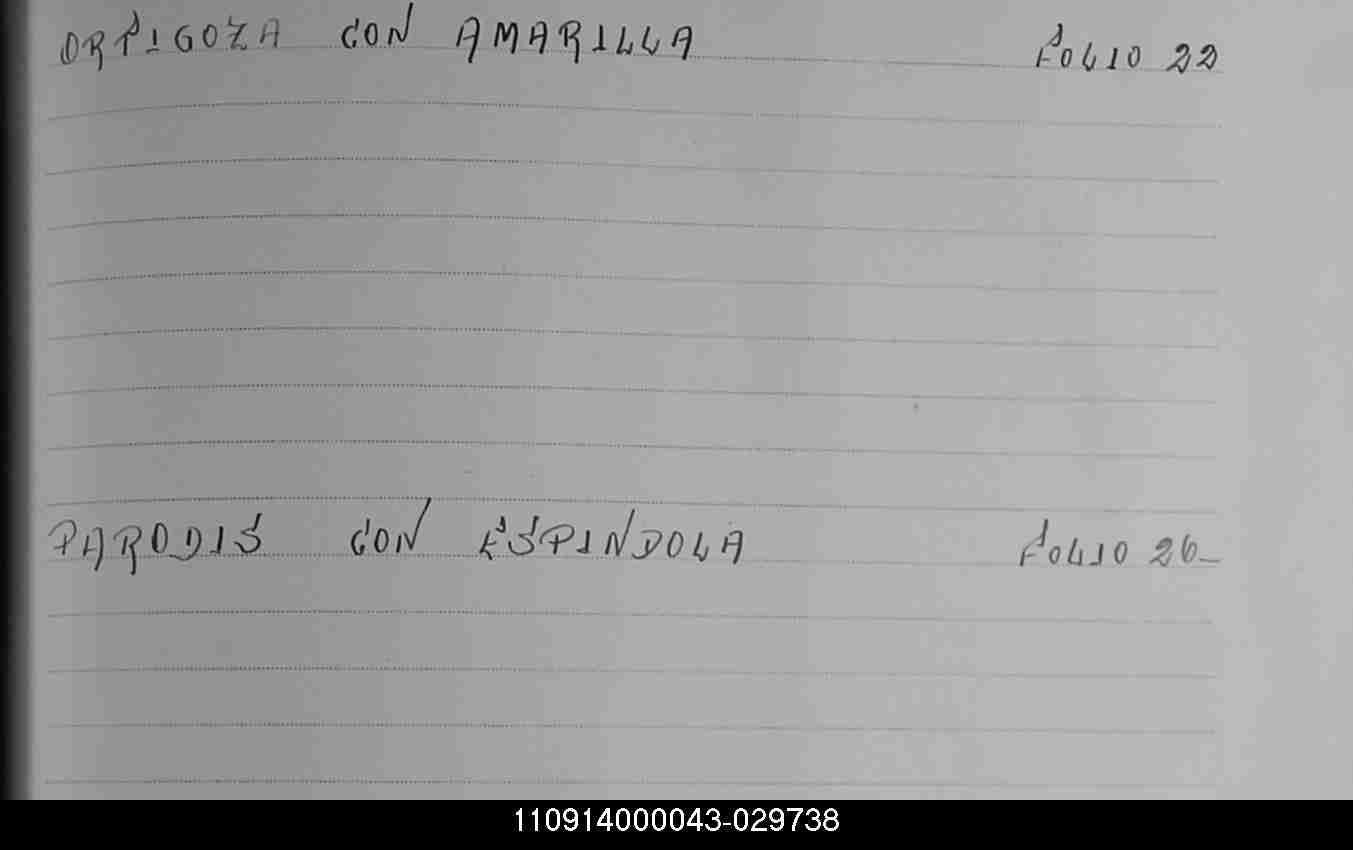 ORTIGOZA CON AMARILLA FOLIO 22
PARODIS CON ESPINDOLA FOLIO 26-
110914000043-029738